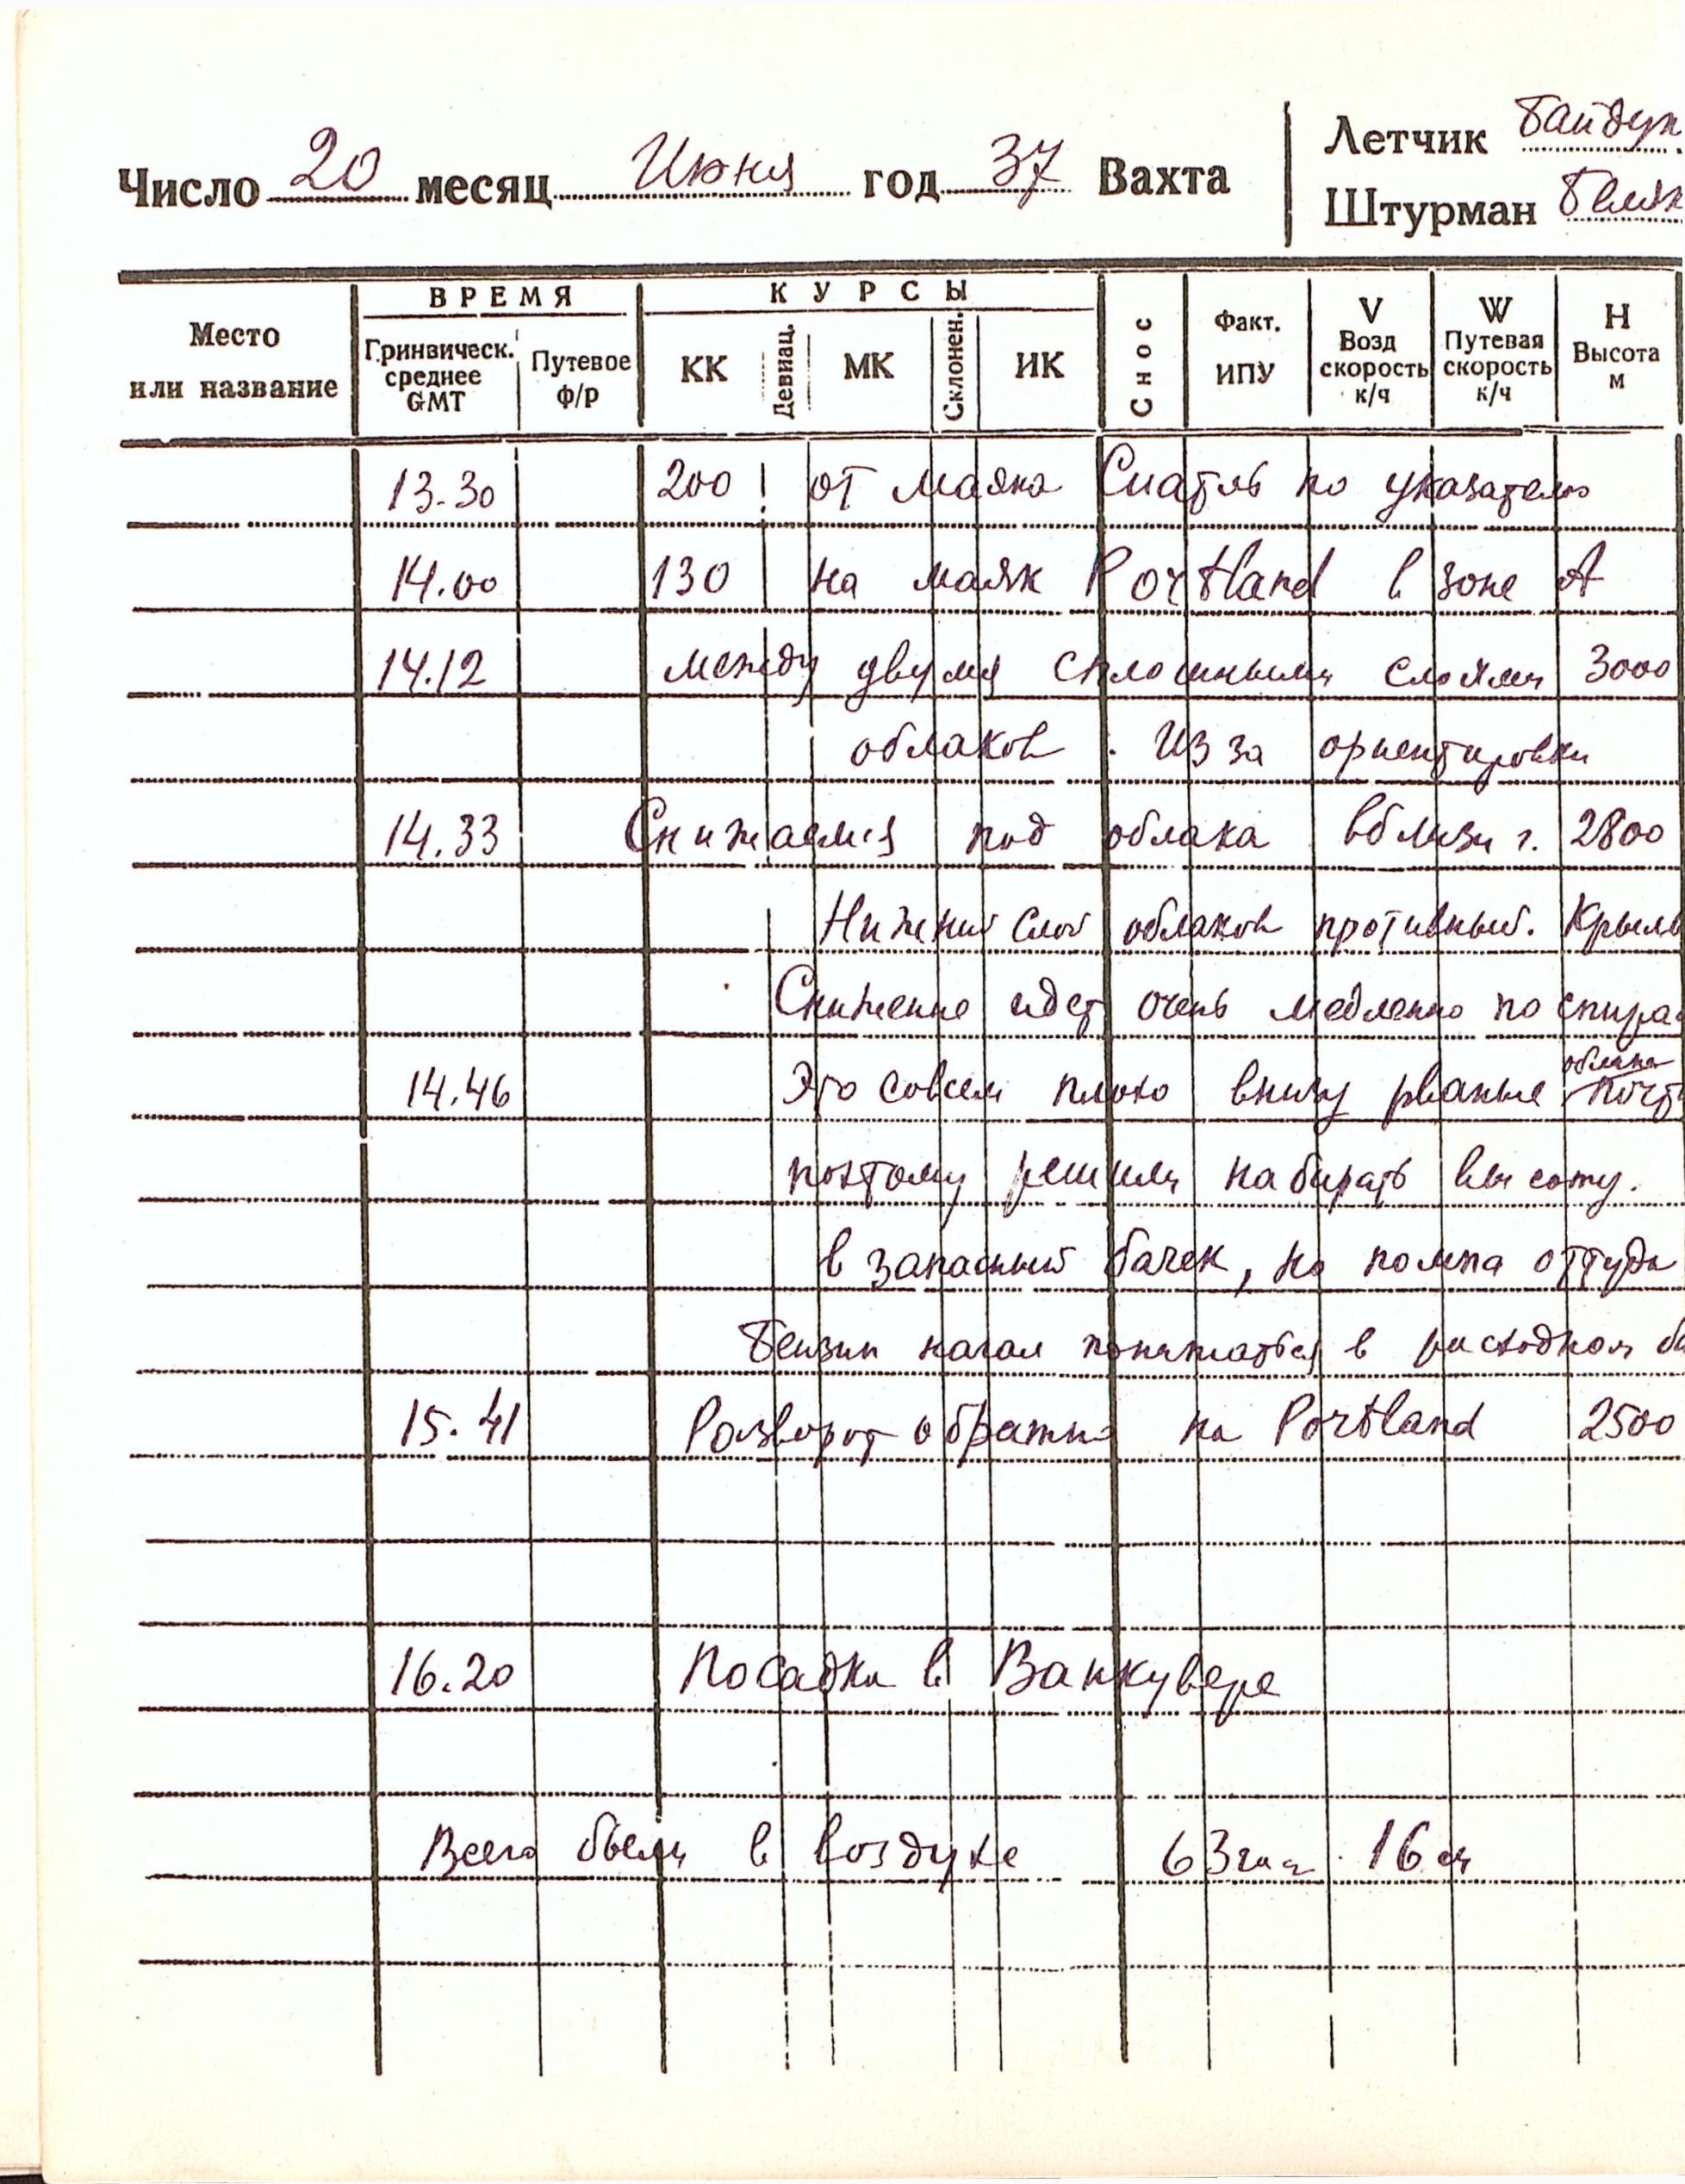 Число 20 месяц Июня год 37 Вахта
Летчик Байдук
Штурман Беляк
Место или название
ВРЕМЯ
Гринвическ. среднее GMT
Путевое ф/р
КУРСЫ
КК
Девиац.
МК
Склонен.
ИК
Снос
Факт. ИПУ
V Возд скорость к/ч
W Путевая скорость к/ч
Н Высота м
13.30 200 от маяка Сиатль по указателю
14.00 130 на маяк Portland в зоне А
14.12 между двумя сплошными слоями 3000
облаков. Из за ориентировки
14.33 Снижаемся под облака вблизи г. 2800
Нижний слой облаков противный. Крыль
Снижение идет очень медленно по спира
облака
14.46 Это совсем плохо внизу рваные почт
поэтому решили набирать высоту.
в запасный бачек, но помпа оттуда
Бензин начал понижаться в расходном ба
15.41 Разворот обратно на Portland 2500
16.20 Посадка в Ванкувере
Всего были в воздухе 63 час 16 м